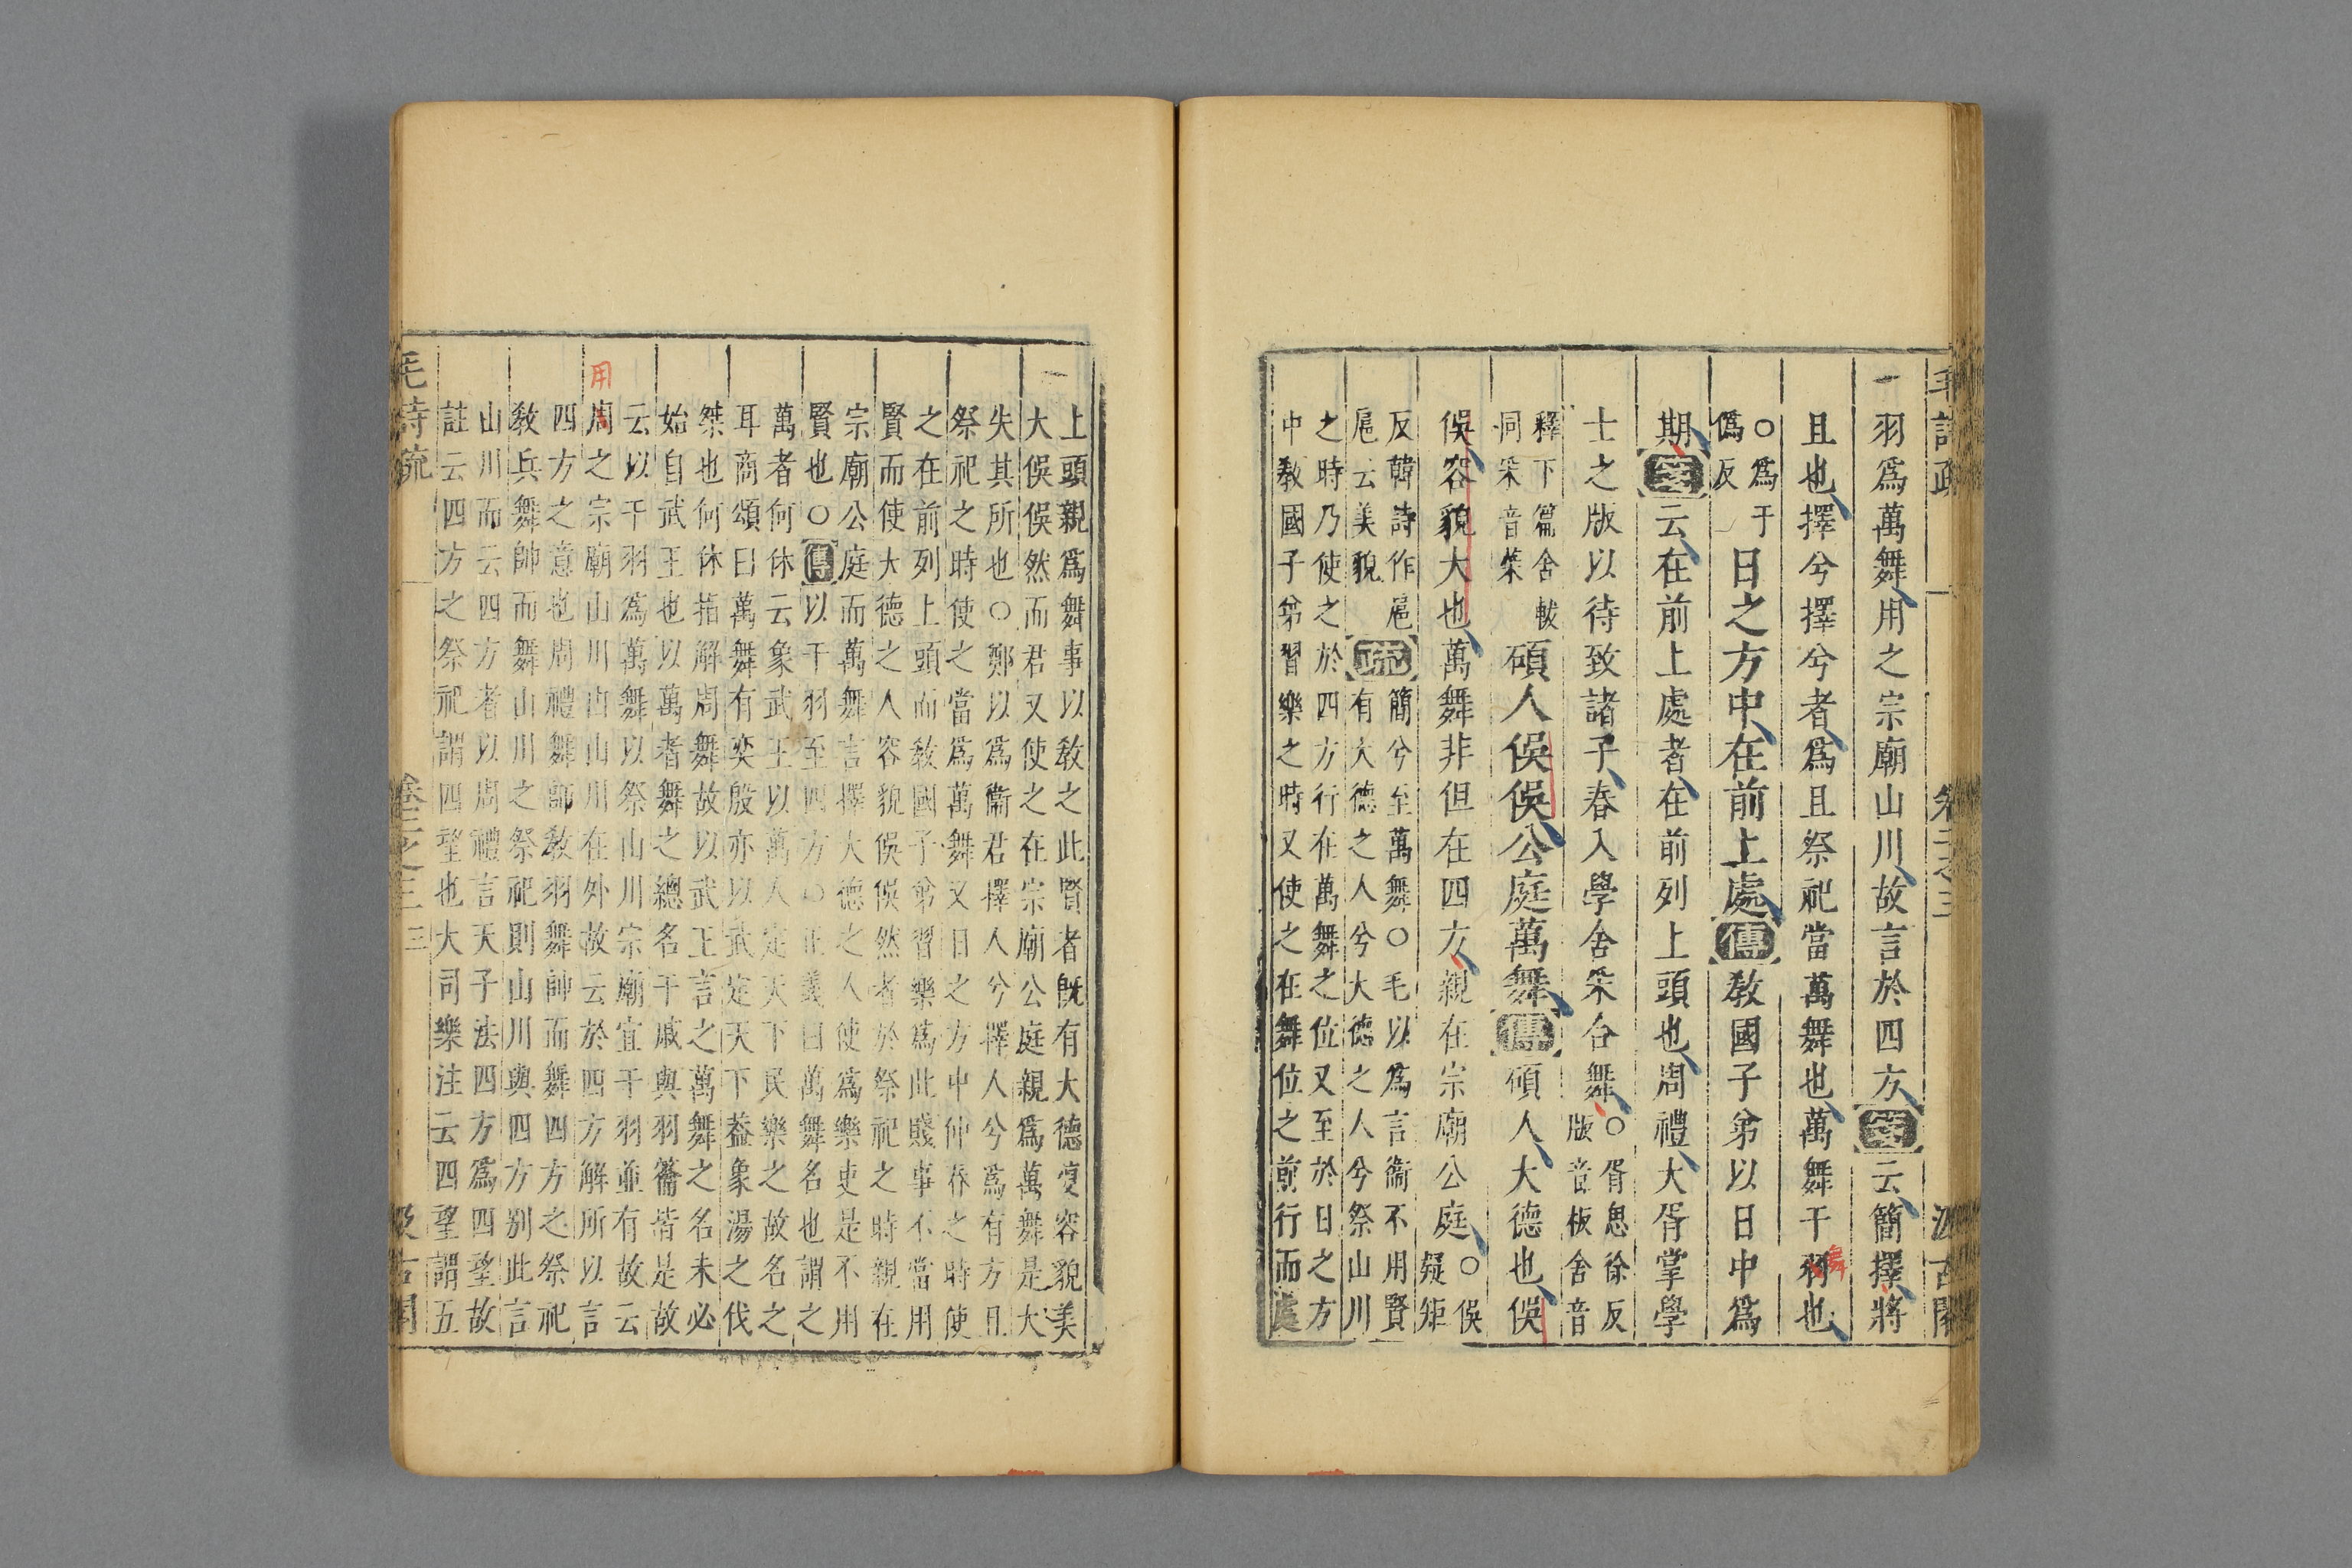 毛詩疏
卷二之三
汲古閣
羽爲萬舞用之宗廟山川故言於四方箋云簡擇將
且也擇兮擇兮者爲且祭祀當萬舞也萬舞干羽也
舞
○爲于
僞反
日之方中在前上處傳教國子弟以日中爲
期箋云在前上處者在前列上頭也周禮大胥掌學
士之版以待致諸子春入學舍采合舞
○胥思徐反
版音板舍音
釋下篇舍軷
同采音菜
碩人俁俁公庭萬舞傳碩人大德也俁
俁容貌大也萬舞非但在四方親在宗廟公庭
○俁
疑矩
反韓詩作扈
扈云美貌
疏
簡兮至萬舞○毛以爲言衞不用賢
有大德之人兮大德之人兮祭山川
之時乃使之於四方行在萬舞之位又至於日之方
中教國子弟習樂之時又使之在舞位之前行而處
上頭親爲舞事以教之此賢者既有大德復容貌美
大俁俁然而君又使之在宗廟公庭親爲萬舞是大
失其所也○鄭以爲衞君擇人兮擇人兮爲有方且
祭祀之時使之當爲萬舞又日之方中仲春之時使
之在前列上頭而教國子弟習樂爲此賤事不當用
賢而使大德之人容貌俁俁然者於祭祀之時親在
宗廟公庭而萬舞言擇大德之人使爲樂吏是不用
賢也○傳以干羽至四方○正義曰萬舞名也謂之
萬者何休云象武王以萬人定天下民樂之故名之
耳商頌曰萬舞有奕殷亦以武定天下蓋象湯之伐
桀也何休指解周舞故以武王言之萬舞之名未必
始自武王也以萬者舞之總名干戚與羽籥皆是故
云以干羽爲萬舞以祭山川宗廟宜干羽並有故云
用
周之宗廟山川由山川在外故云於四方解所以言
四方之意也周禮舞師教羽舞帥而舞四方之祭祀
教兵舞帥而舞山川之祭祀則山川與四方別此言
山川而云四方者以周禮言天子法四方爲四望故
註云四方之祭祀謂四望也大司樂注云四望謂五
毛詩疏
卷二之三
三
汲古閣